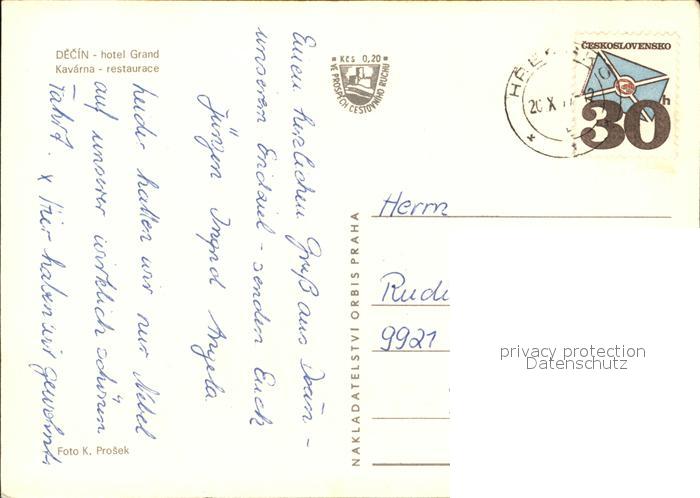 DĚČÍN - hotel Grand
Kavárna - restaurace
Einen herzlichen Gruß aus Dečin -
unserem Endziel - senden Euch
Jürgen Ingrid Angela.
Leider hatten wir nur Nebel
auf unserer wirklich schönen
Fahrt. x Hier haben wir gewohnt.
Foto K. Prošek
Kčs 0,20
VE PROSPĚCH CESTOVNÍHO RUCHU
NAKLADATELSTVÍ ORBIS PRAHA
20 X
ČESKOSLOVENSKO
30h
Herrn
Rudi
9921
privacy protection
Datenschutz